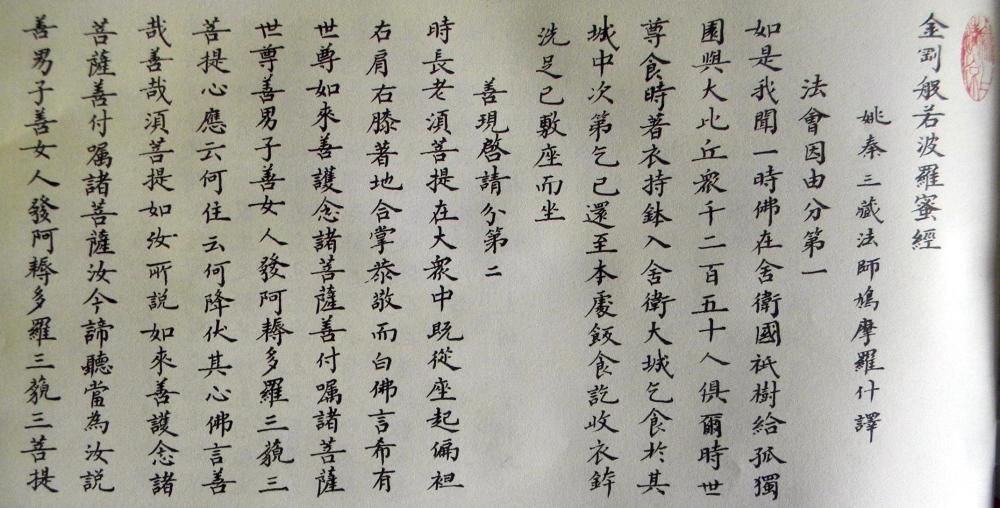 金剛般若波羅蜜經
姚秦三藏法師鳩摩羅什譯
法會因由分第一
如是我聞一時佛在舍衛國祇樹給孤獨
園與大比丘眾千二百五十人俱爾時世
尊食時著衣持鉢入舍衛大城乞食於其
城中次第乞已還至本處飯食訖收衣鉢
洗足已敷座而坐
善現啓請分第二
時長老湏菩提在大眾中既從座起偏袒
右肩右膝著地合掌恭敬而白佛言希有
世尊如來善護念諸菩薩善付囑諸菩薩
世尊善男子善女人發阿耨多羅三藐三
菩提心應云何住云何降伏其心佛言善
哉善哉湏菩提如汝所說如來善護念諸
菩薩善付囑諸菩薩汝今諦聽當為汝說
善男子善女人發阿耨多羅三藐三菩提